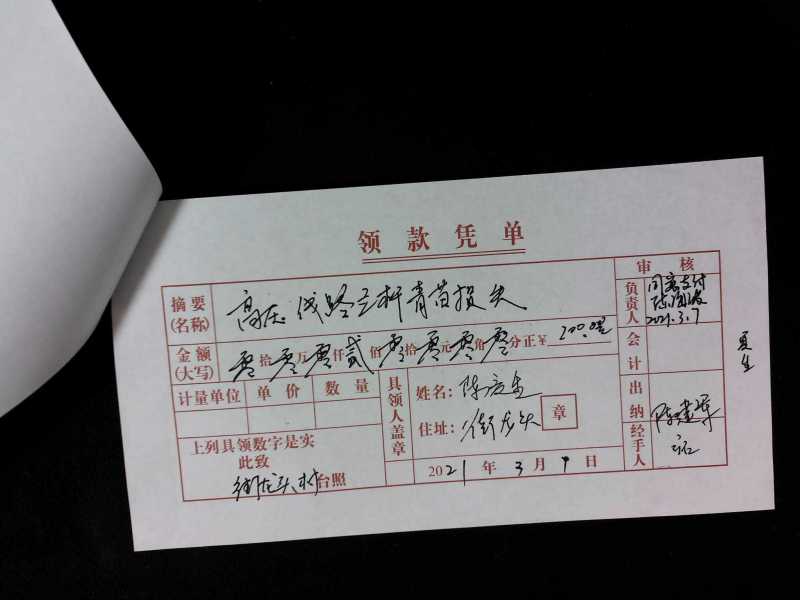 领款凭单
摘要(名称) 高压线路立杆青苗损失
金额(大写) 零拾零万零仟贰佰零拾零元零角零分正¥ 200.00
计量单位 单价 数量
上列具领数字是实
此致
街龙头村台照
具领人盖章
姓名:陈庆生
住址:街龙头
章
2021年3月7日
审核
负责人 同意支付
2021.3.7
会计
出纳
经手人 陈建军